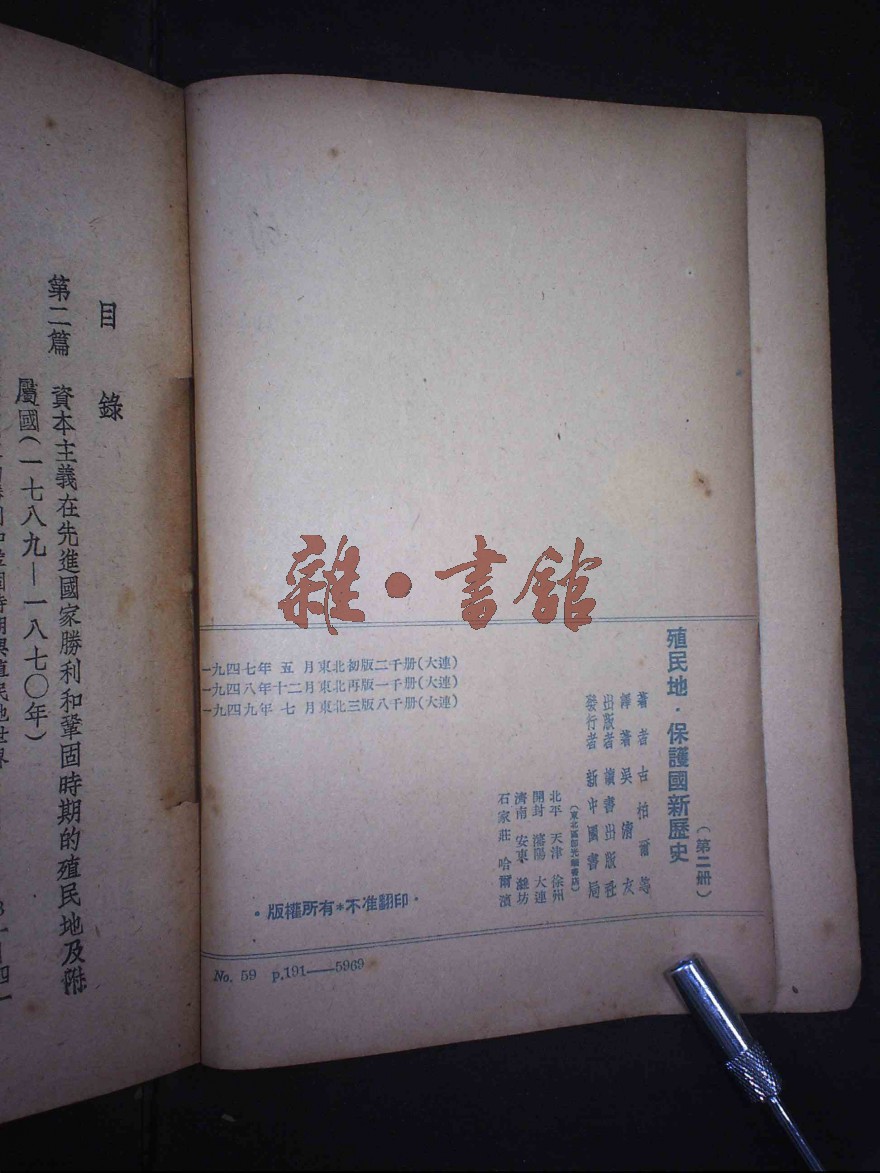 殖民地·保護國新歷史
(第二册)
著者 古柏爾等
譯著 吳清友
出版者 讀書出版社
發行者 新中國書局
(東北區總光華書店)
北平 天津 徐州
開封 瀋陽 大連
濟南 安東 濰坊
石家莊 哈爾濱
一九四七年 五 月東北初版二千册(大連)
一九四八年十二月東北再版一千册(大連)
一九四九年 七 月東北三版八千册(大連)
·版權所有*不准翻印·
No. 59 p.191——5969
雜·書館
目錄
第二篇 資本主義在先進國家勝利和鞏固時期的殖民地及附
屬國(一七八九—一八七〇年)